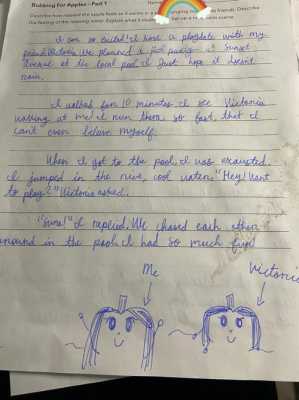 Bobbing For Apples - Part 1
Describe how relaxed the apple feels as it swims in a
friends. Describe
the feeling of the relaxing water. Explain what it
I am so excited! I have a playdate with my
friend Victoria we planned a fun party at Sunset
Avenue at the local pool. I just hope it doesnt
rain.
I walked for 10 minutes I see Victoria
waving at me! I run there so fast, that I
cant even belive myself.
When I got to the pool, I was exausted.
I jumped in the nice, cool water. "Hey! Want
to play?" Victoria asked.
"Sure!" I replied. We chased each other
around in the pool. I had so much fun!
Me
Victoria